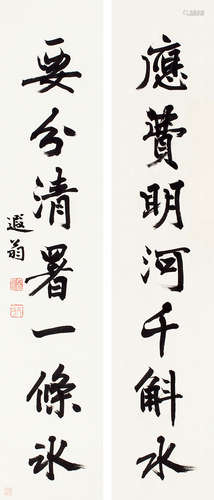 應費明河千斛水
要分清署一條冰
遐翁